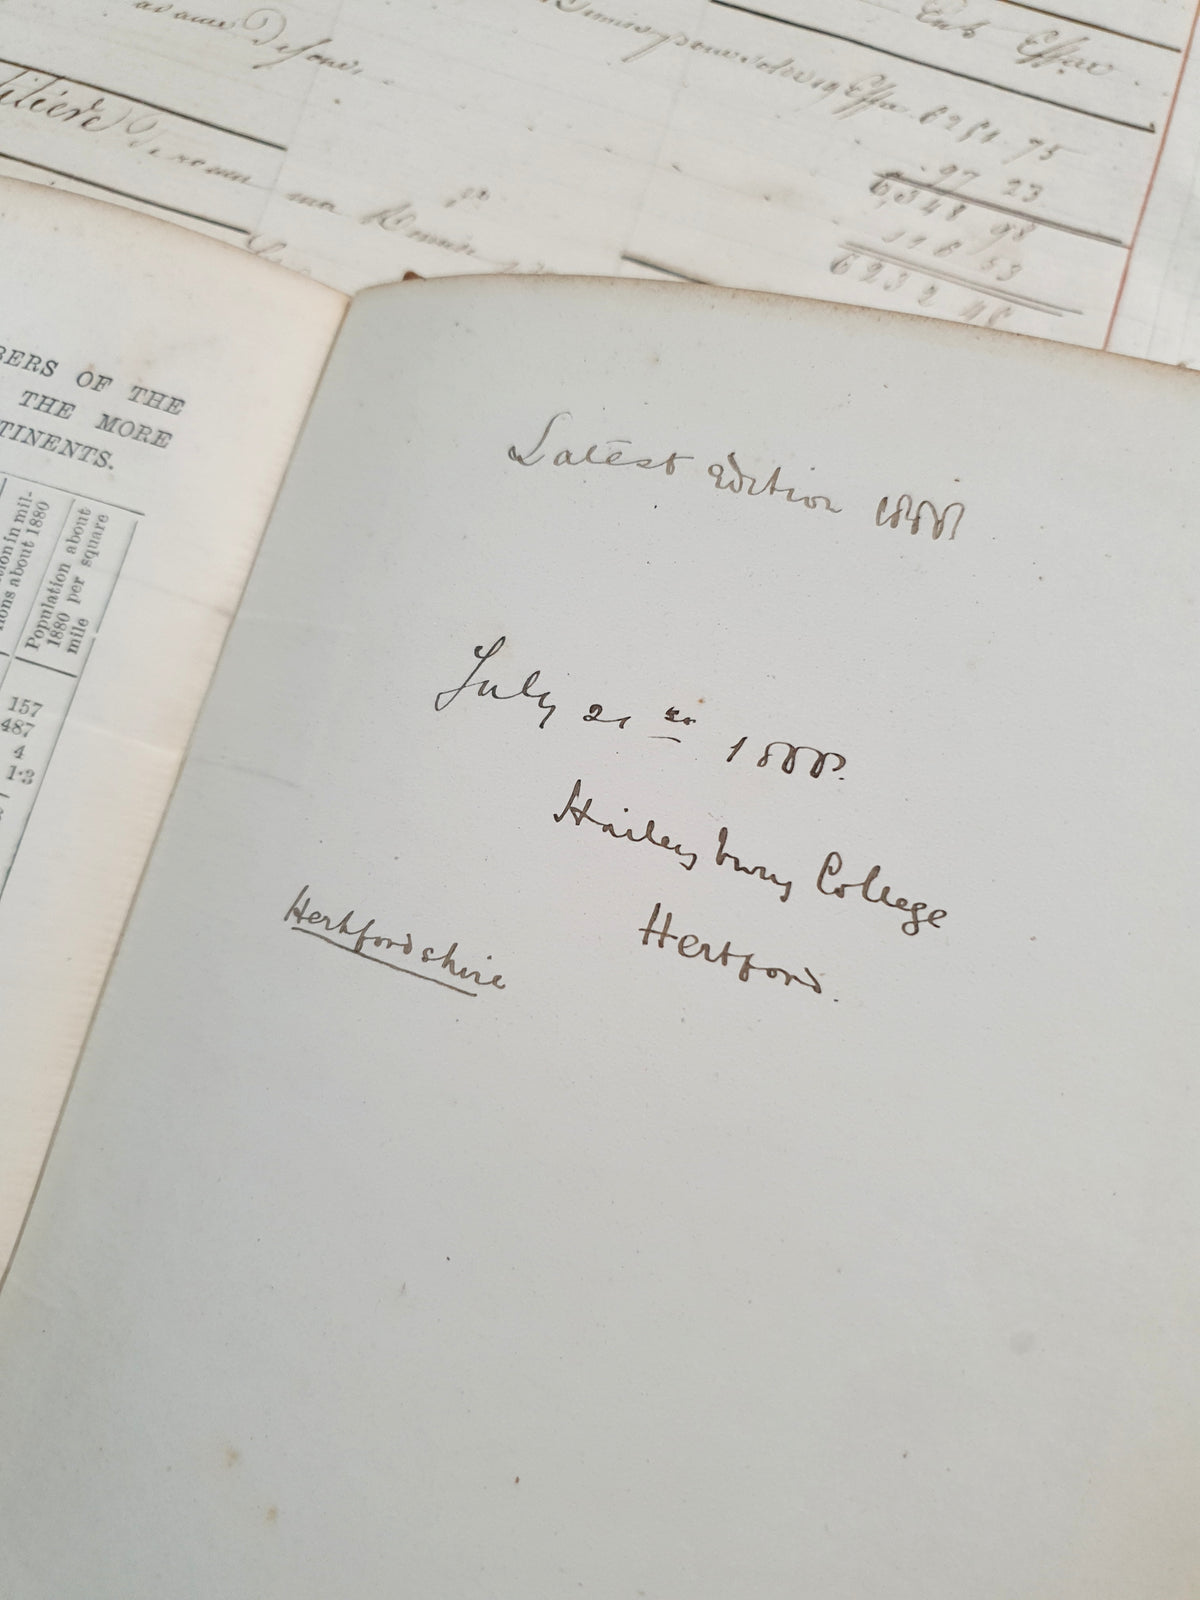 Ent Effac
6251 75
97 23
6348 98
116 53
6232 45
BERS OF THE
THE MORE
TINENTS.
tion in mil-
lions about 1880
Population about
1880 per square
mile
157
487
4
1·3
Latest Edition 1888
July 21st 1888.
Haileybury College
Hertford.
Hertfordshire